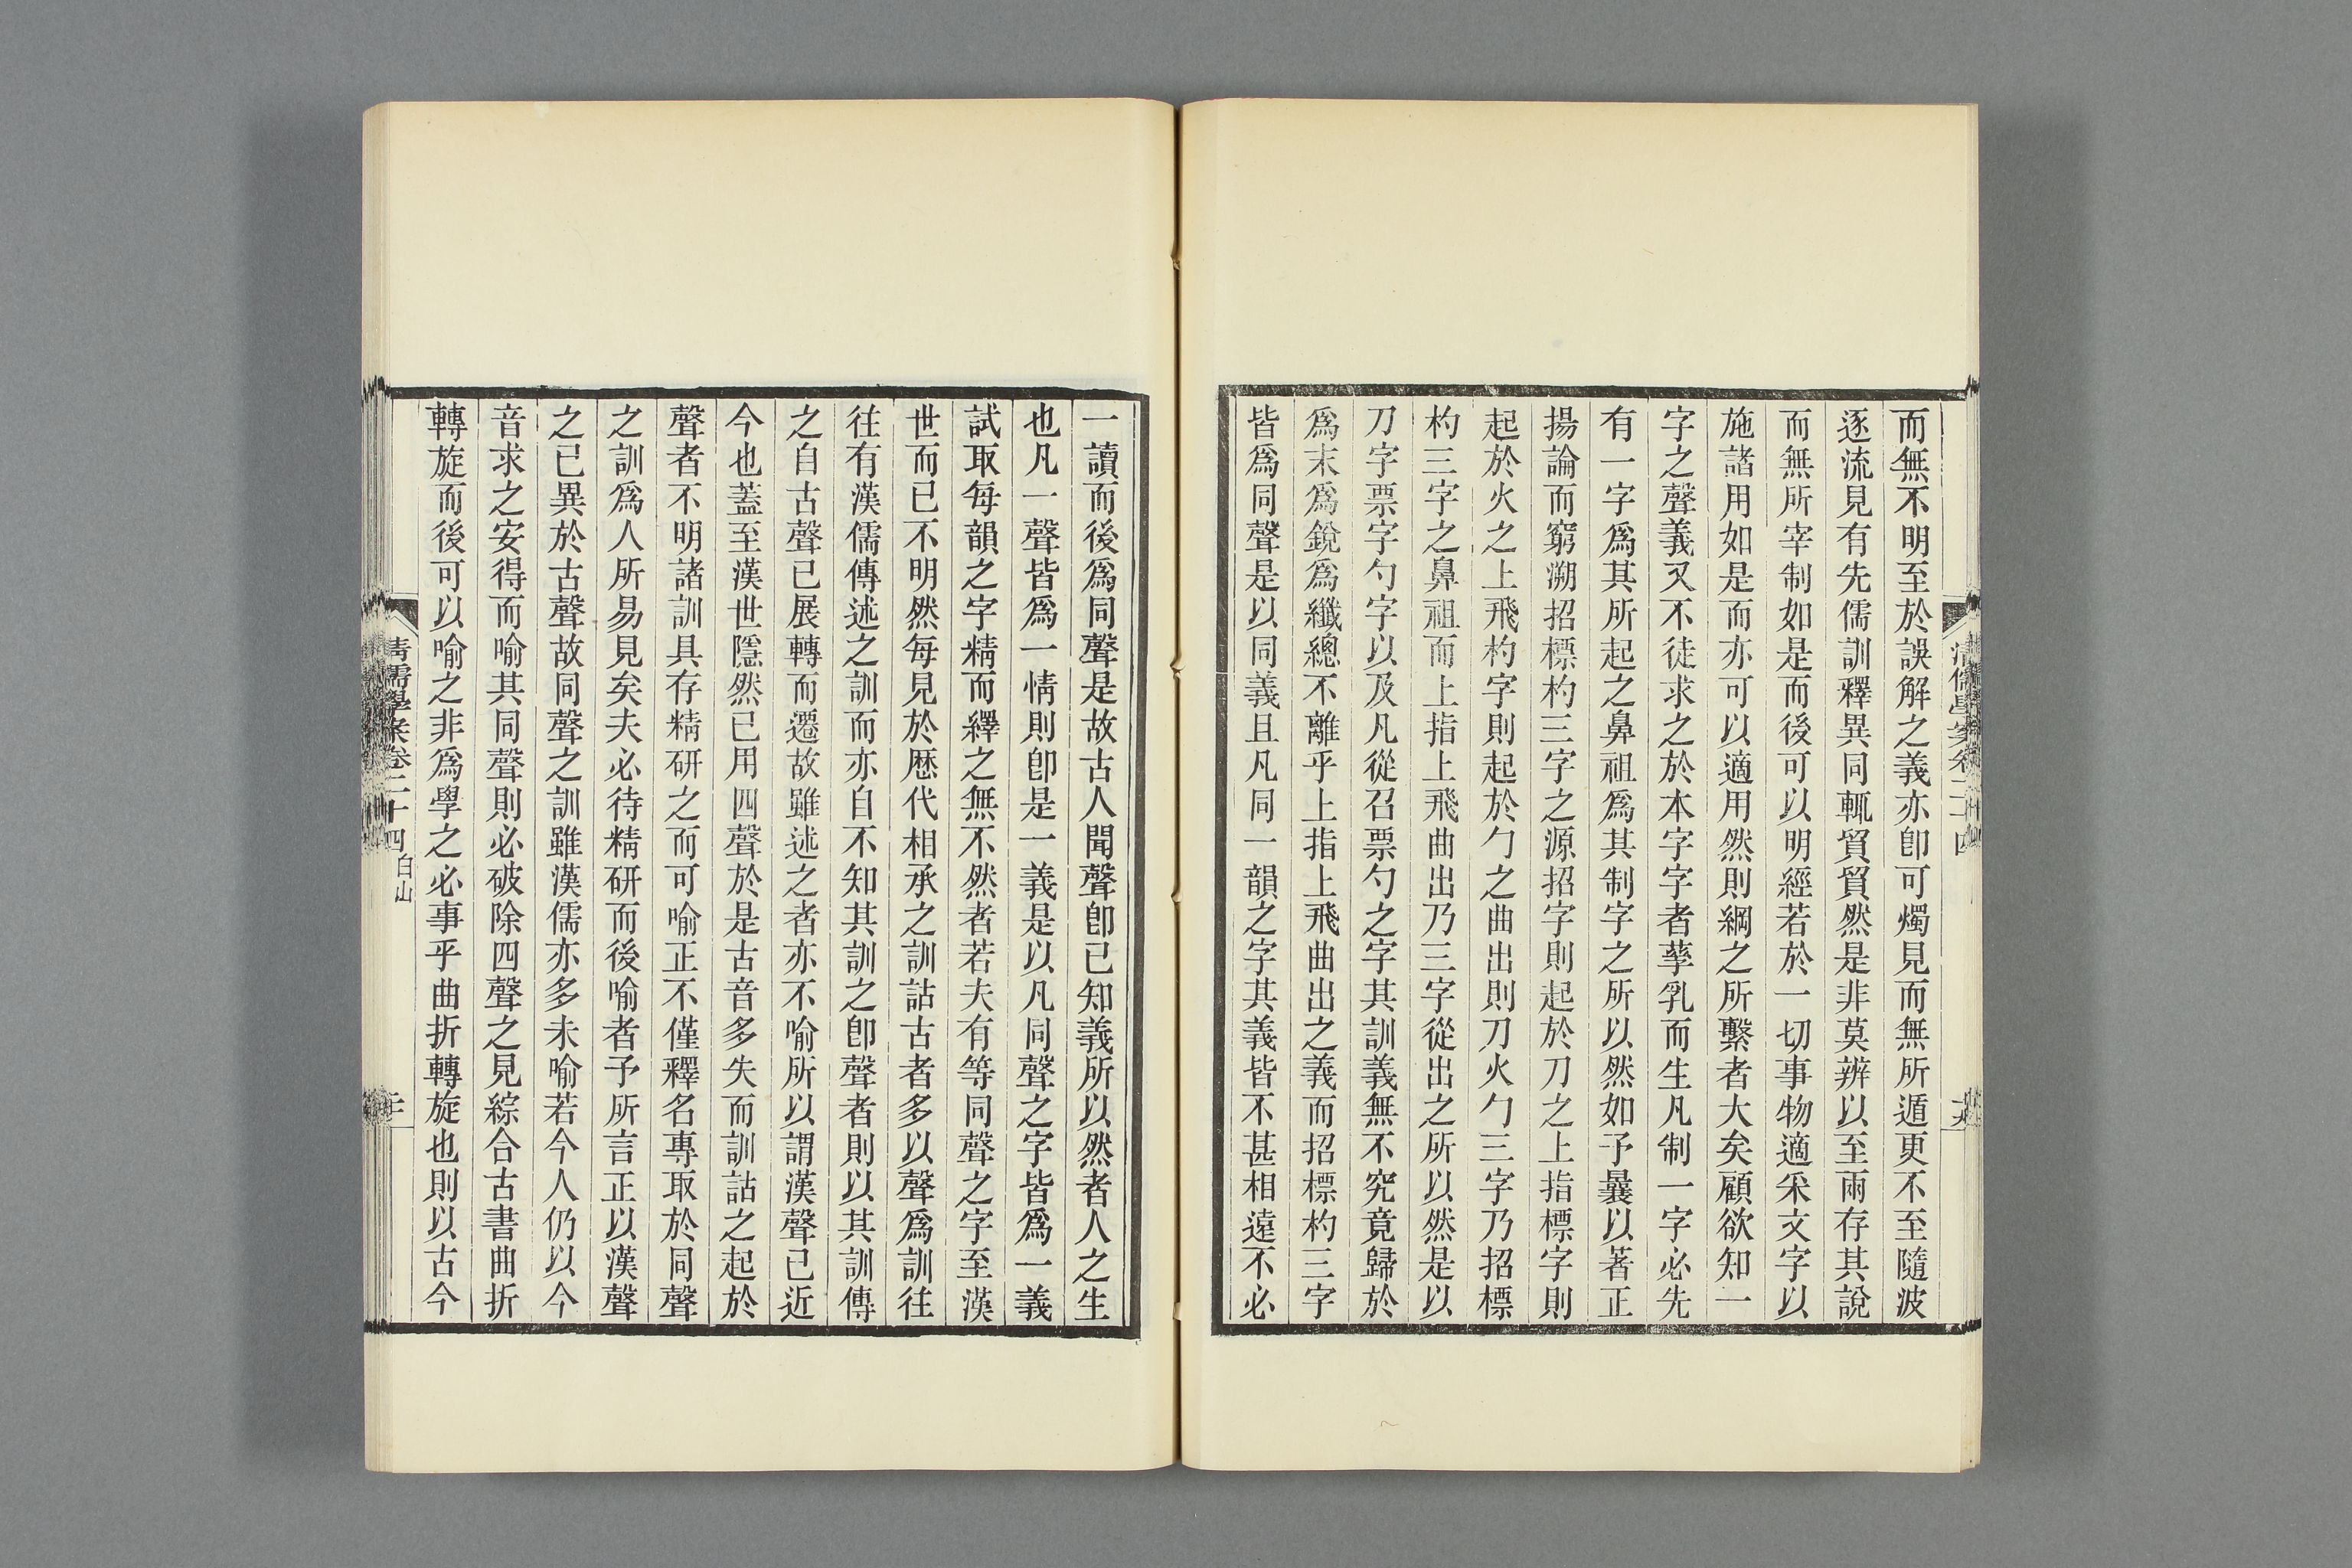 而無不明至於誤解之義亦卽可燭見而無所遁更不至隨波
逐流見有先儒訓釋異同輒貿貿然是非莫辨以至兩存其說
而無所宰制如是而後可以明經若於一切事物適采文字以
施諸用如是而亦可以適用然則綱之所繫者大矣顧欲知一
字之聲義又不徒求之於本字字者孳乳而生凡制一字必先
有一字爲其所起之鼻祖爲其制字之所以然如予曩以著正
揚論而窮溯招標杓三字之源招字則起於刀之上指標字則
起於火之上飛杓字則起於勹之曲出則刀火勹三字乃招標
杓三字之鼻祖而上指上飛曲出乃三字從出之所以然是以
刀字票字勺字以及凡從召票勺之字其訓義無不究竟歸於
爲末爲銳爲纖總不離乎上指上飛曲出之義而招標杓三字
皆爲同聲是以同義且凡同一韻之字其義皆不甚相遠不必
一讀而後爲同聲是故古人聞聲卽已知義所以然者人之生
也凡一聲皆爲一情則卽是一義是以凡同聲之字皆爲一義
試取每韻之字精而繹之無不然者若夫有等同聲之字至漢
世而已不明然每見於歷代相承之訓詁古者多以聲爲訓往
往有漢儒傳述之訓而亦自不知其訓之卽聲者則以其訓傳
之自古聲已展轉而遷故雖述之者亦不喻所以謂漢聲已近
今也蓋至漢世隱然已用四聲於是古音多失而訓詁之起於
聲者不明諸訓具存精研之而可喻正不僅釋名專取於同聲
之訓爲人所易見矣夫必待精研而後喻者予所言正以漢聲
之已異於古聲故同聲之訓雖漢儒亦多未喻若今人仍以今
音求之安得而喻其同聲則必破除四聲之見綜合古書曲折
轉旋而後可以喻之非爲學之必事乎曲折轉旋也則以古今
清儒學案卷二十四 白山